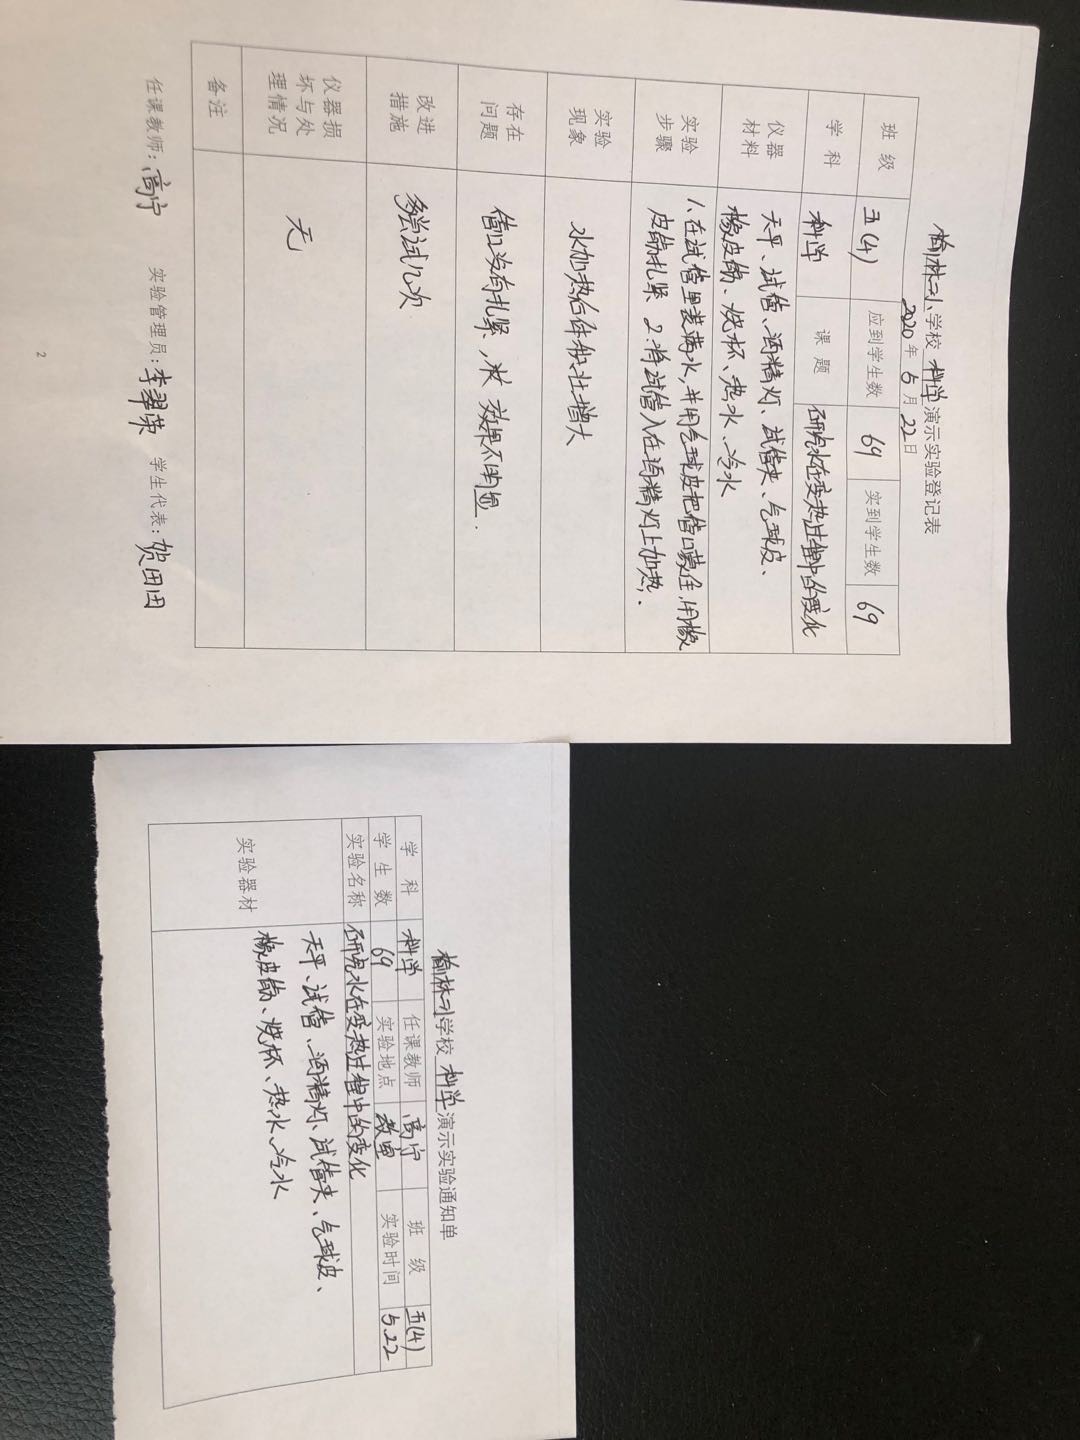 榆林小学校 科学 演示实验登记表
2020年5月22日
班级 五(4) 应到学生数 69 实到学生数 69
学科 科学 课题 研究水在变热过程中的变化
仪器材料 天平、试管、酒精灯、试管夹、气球皮、
橡皮筋、烧杯、热水、冷水
实验步骤 1、在试管里装满水,并用气球皮把管口蒙住,用橡
皮筋扎紧 2、将试管入在酒精灯上加热.
实验现象 水加热后体积增大
存在问题 管口没有扎紧,效果不明显.
改进措施 多尝试几次
仪器损坏与处理情况 无
备注
任课教师:高宁 实验管理员:李翠荣 学生代表:贺田田
2
榆林小学校 科学 演示实验通知单
学科 科学 任课教师 高宁 班级 五(4)
学生数 69 实验地点 教室 实验时间 5.22
实验名称 研究水在变热过程中的变化
实验器材 天平、试管、酒精灯、试管夹、气球皮、
橡皮筋、烧杯、热水、冷水